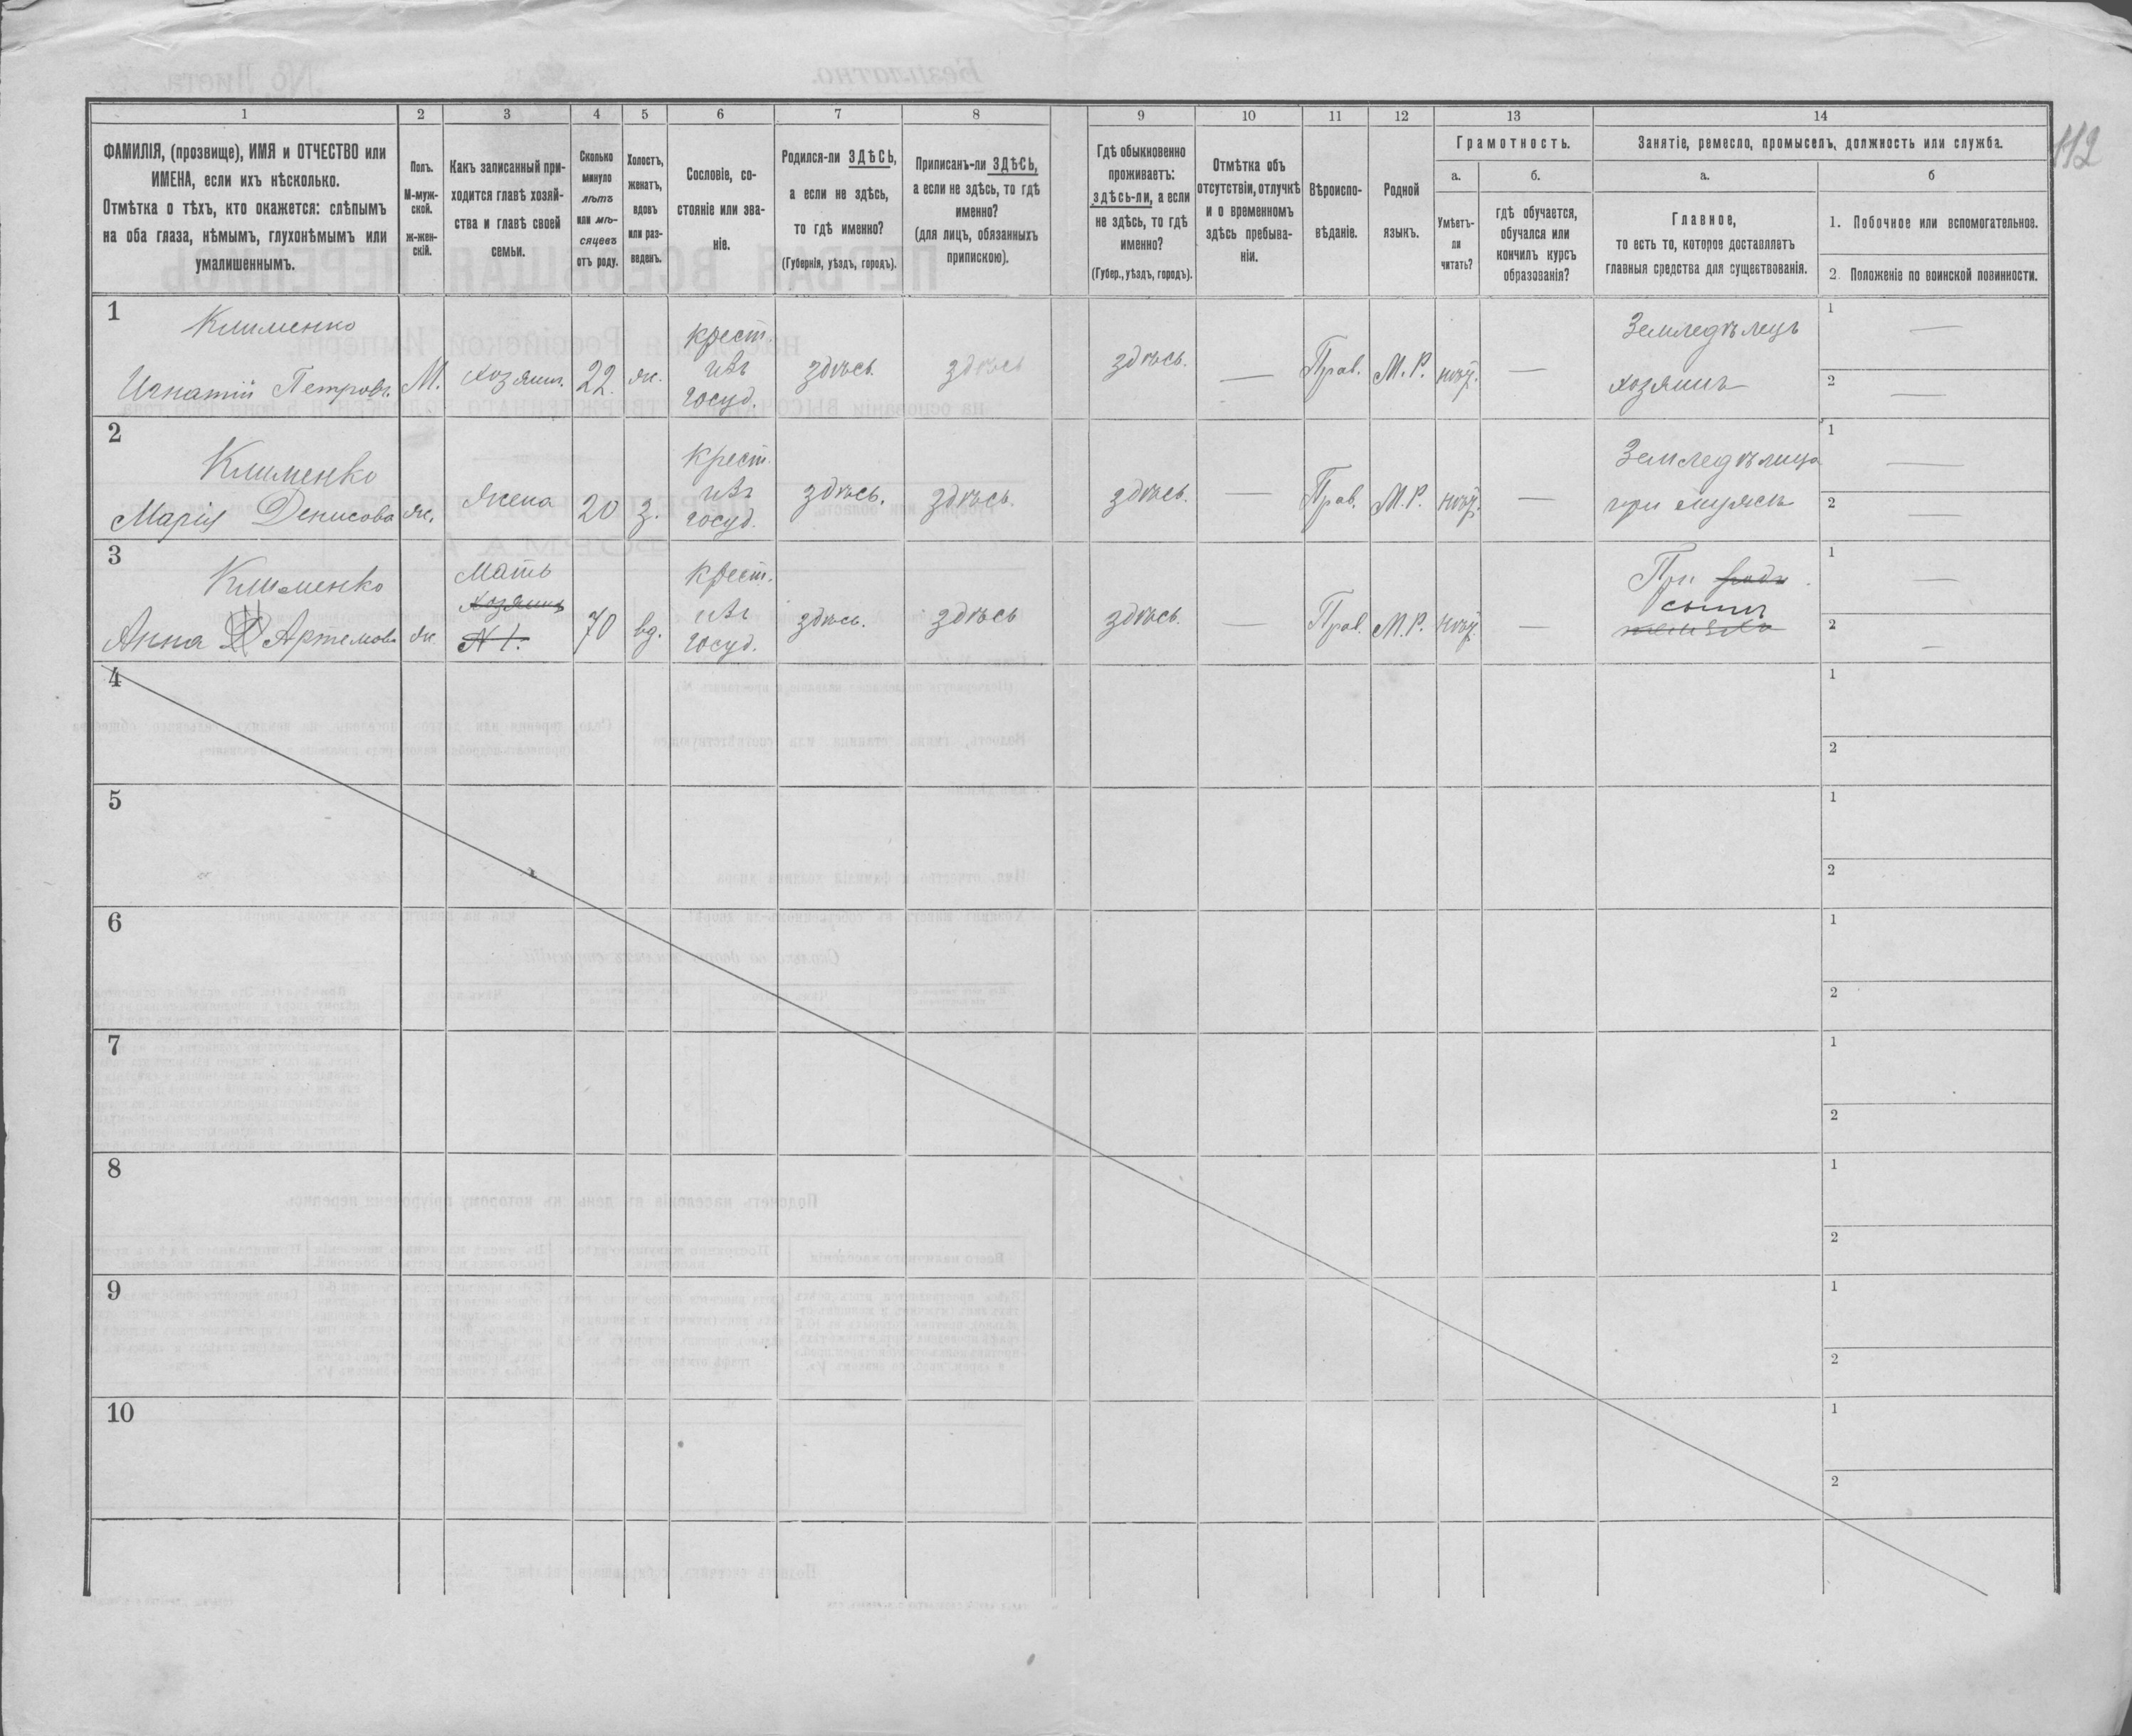 112
1 2 3 4 5 6 7 8 9 10 11 12 13 14
ФАМИЛІЯ, (прозвище), ИМЯ и ОТЧЕСТВО или
ИМЕНА, если ихъ нѣсколько.
Отмѣтка о тѣхъ, кто окажется: слѣпымъ
на оба глаза, нѣмымъ, глухонѣмымъ или
умалишеннымъ.
Полъ.
М-муж-
ской.
ж-жен-
скій.
Какъ записанный при-
ходится главѣ хозяй-
ства и главѣ своей
семьи.
Сколько
минуло
лѣтъ
или мѣ-
сяцевъ
отъ роду.
Холостъ,
женатъ,
вдовъ
или раз-
веденъ.
Сословіе, со-
стояніе или зва-
ніе.
Родился-ли ЗДѢСЬ,
а если не здѣсь,
то гдѣ именно?
(Губернія, уѣздъ, городъ).
Приписанъ-ли ЗДѢСЬ,
а если не здѣсь, то гдѣ
именно?
(для лицъ, обязанныхъ
припискою).
Гдѣ обыкновенно
проживаетъ:
здѣсь-ли, а если
не здѣсь, то гдѣ
именно?
(Губер., уѣздъ, городъ).
Отмѣтка объ
отсутствіи, отлучкѣ
и о временномъ
здѣсь пребыва-
ніи.
Вѣроиспо-
вѣданіе.
Родной
языкъ.
Грамотность.
а.
Умѣетъ-
ли
читать?
б.
гдѣ обучается,
обучался или
кончилъ курсъ
образованія?
Занятіе, ремесло, промыселъ, должность или служба.
а.
Главное,
то есть то, которое доставляетъ
главныя средства для существованія.
б
1. Побочное или вспомогательное.
2. Положеніе по воинской повинности.
1
Клименко
Игнатій Петровъ.
М.
хозяин.
22
ж.
крест.
изъ
госуд.
здѣсь.
здѣсь
здѣсь.
—
Прав.
М.Р.
—
Земледѣлецъ
хозяинъ
1 —
2 —
2
Клименко
Марія Денисова
ж.
жена
20
з.
крест.
изъ
госуд.
здѣсь.
здѣсь.
здѣсь.
—
Прав.
М.Р.
—
Земледѣлица
при мужѣ
1 —
2 —
3
Клименко
Анна Артемова
ж.
Мать
хозяина
№ 1.
70
вд.
крест.
изъ
госуд.
здѣсь.
здѣсь
здѣсь.
—
Прав.
М.Р.
—
При
сынѣ
1 —
2 —
4
1
2
5
1
2
6
1
2
7
1
2
8
1
2
9
1
2
10
1
2